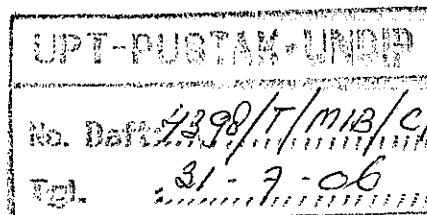 UPT-PUSTAK-UNDIP
No. Daft: 4398/T/MIB/C/
Tgl. : 31 - 7 - 06